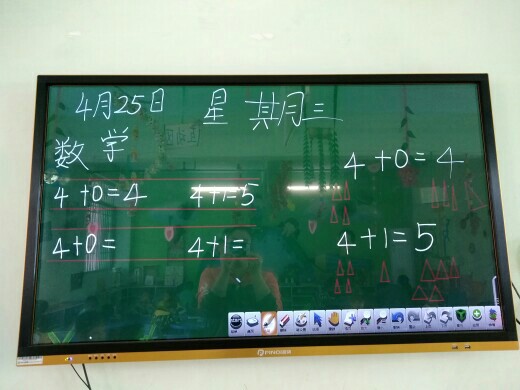 4月25日 星期三
数学
4+0=4
4+0=4 4+1=5
4+1=5
4+0= 4+1=